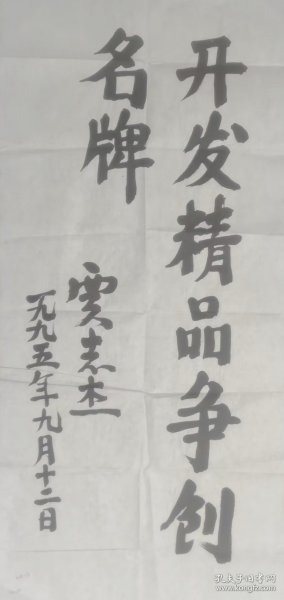 开发精品争创
名牌
贾志杰
一九九五年九月十二日
孔夫子旧书网
www.kongfz.com